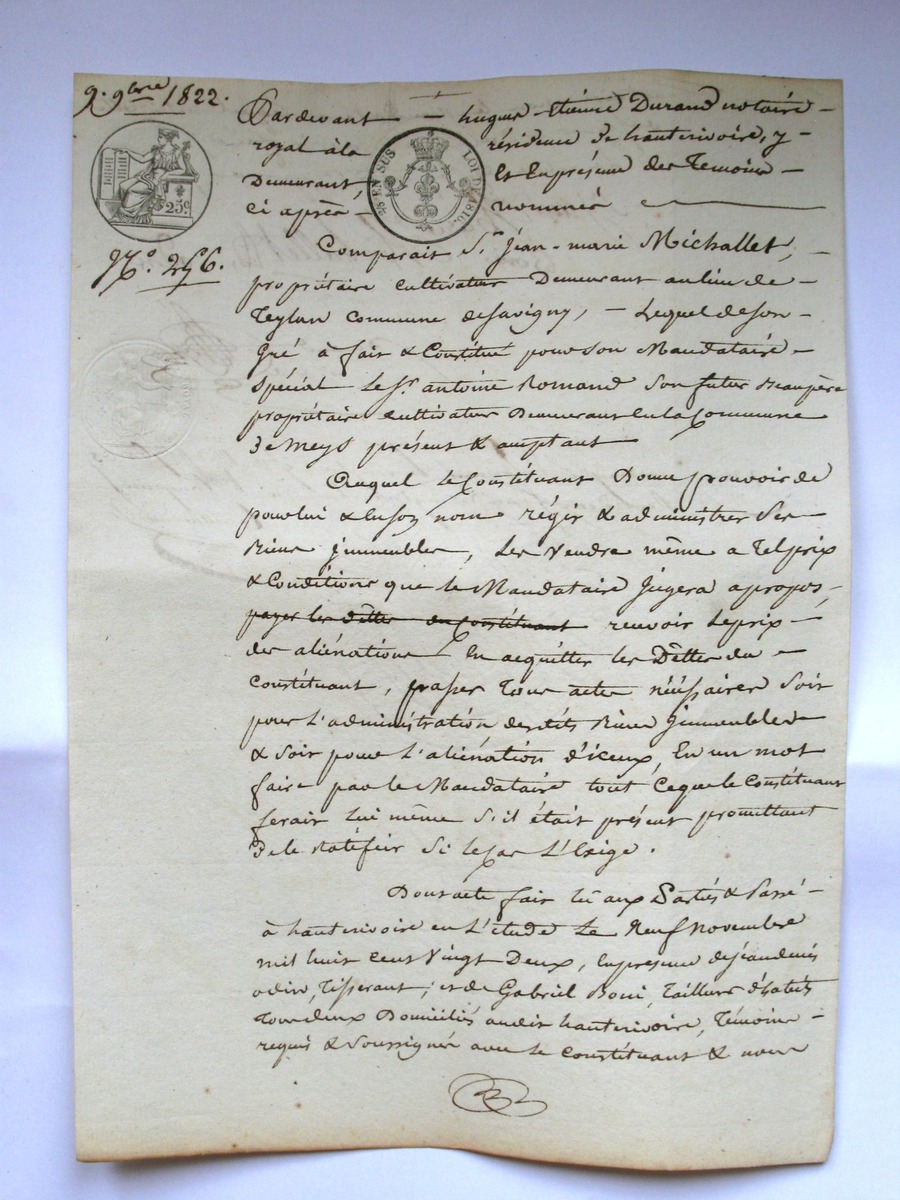 9. 9bre 1822.
Pardevant – hugues étienne Durand notaire –
royal à la résidence de hauterivoire, y
Demeurant, Et En présence des Temoins
ci après – nommés
25 EN SUS
LOI DE 1816.
25c
No. 256.
Comparait Sr. Jean-marie Michallet, –
propriétaire cultivateur Demeurant au lieu de –
Teylun commune de Savigny, – Lequel de son –
Gré à fait & Constitué pour son Mandataire –
Spécial Le Sr. antoine Romand son futur Beaupère
propriétaire cultivateur Demeurant En la Commune
de Meys présent & acceptant
Auquel le Constituant Donne pouvoir de
pour lui & En son nom régir & administrer Ses
Biens jmmeubles, Les Vendre même a Tel prix
& Conditions que le Mandataire Jugera apropos,
payer les dêttes du Constituant recevoir Le prix –
des aliénations En acquitter les Dêttes du –
Constituant, passer Tous actes nécéssaires Soit
pour L'administration desdits Biens jmmeubles
& Soit pour L'aliénation d'iceux, En un mot
faire par le Mandataire tout Ceque le Constituant
ferait Lui même S'il était présent promettant
De le Ratifier Si le cas L'Exige.
Dont acte fait lû aux Parties & Passé –
à hauterivoire en L'étude Le Neuf Novembre
mil huit cent Vingt Deux, En présence de Jean denis
odin, Tisserant; et de Gabriel Boni, Tailleur d'habits
Tous deux Domiciliés audit hauterivoire, Témoins –
requis & Soussignés avec le constituant & nous